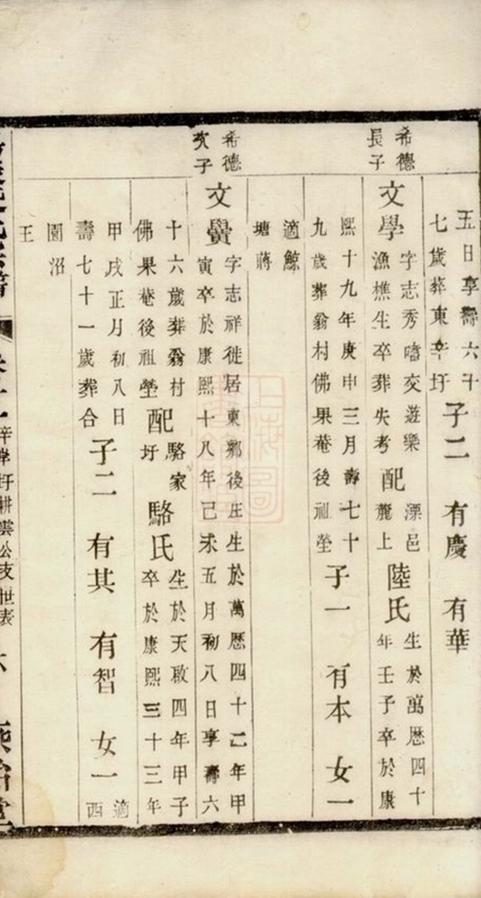 五日享壽六十
七歲葬東辛圩
子二 有慶 有華
希德
長子
文學
字志秀嗜交遊樂
漁樵生卒葬失考
配
溧邑
麓上
陸氏
生於萬曆四十
年壬子卒於康
熙十九年庚申三月壽七十
九歲葬翁村佛果菴後祖塋
子一 有本 女一
適鯨
塘蔣
希德
次子
文黌
字志祥徙居東鄉後庄生於萬曆四十二年甲
寅卒於康熙十八年己未五月初八日享壽六
十六歲葬翁村
佛果菴後祖塋
配
駱家
圩
駱氏
生於天啟四年甲子
卒於康熙三十三年
甲戌正月初八日
壽七十一歲葬合
子二 有其 有智 女一
適
西
園沼
王
圩耕雲公支世表